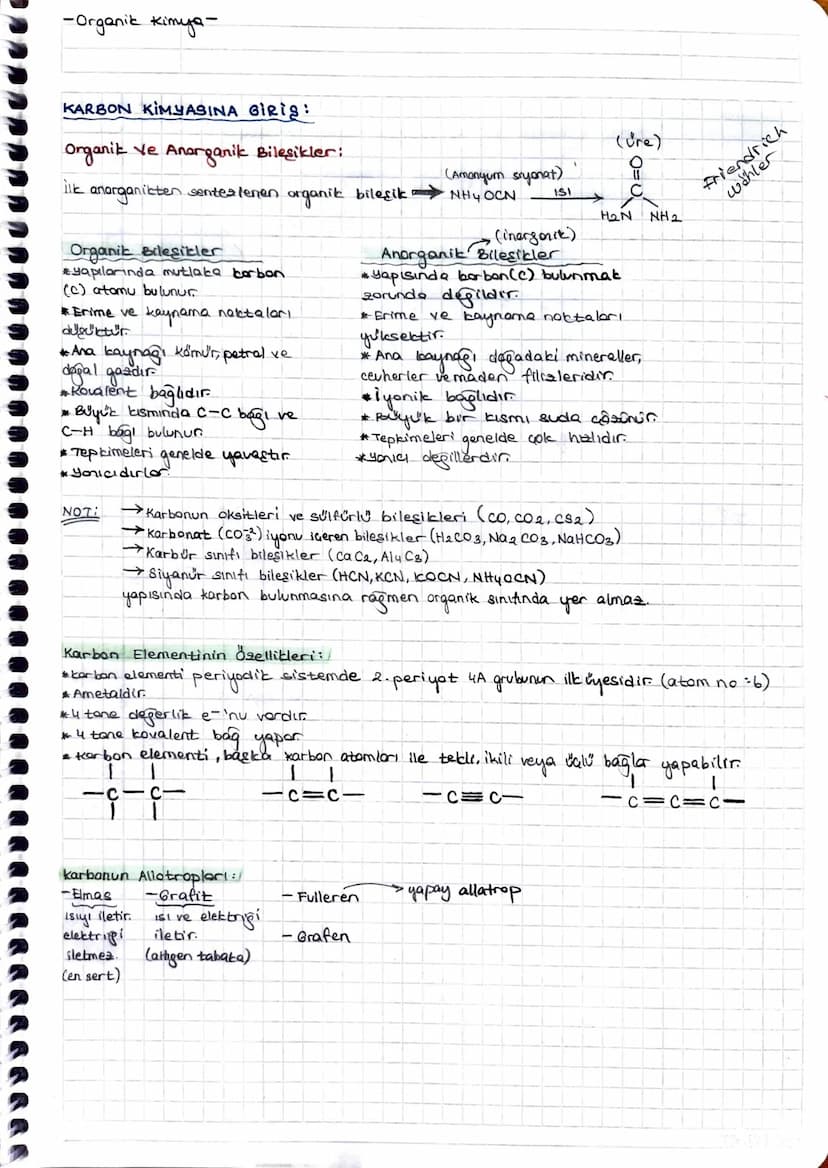 -Organik Kimya-
KARBON KİMYASINA GİRİŞ:
Organik Ve Anorganik Bileşikler:
İlk anorganikten sentezlenen organik bileşik ⟹ NH4OCN
(Amonyum siyanat)
ısı
(Üre)
O
C
H2N NH2
Friendrich
Wöhler
Organik Bileşikler
*Yapılarında mutlaka karbon
(C) atomu bulunur.
*Erime ve kaynama noktaları
düşüktür.
*Ana kaynağı kömür, petrol ve
doğal gazdır.
*Kovalent bağlıdır.
*Büyük kısmında C-C bağı ve
C-H bağı bulunur.
*Tepkimeleri genelde yavaştır.
*Yanıcıdırlar.
(inorganik)
Anorganik Bileşikler
*Yapısında karbon(C) bulunmak
zorunda değildir.
*Erime ve kaynama noktaları
yüksektir.
*Ana kaynağı doğadaki mineraller,
cevherler ve maden filizleridir.
*İyonik bağlıdır.
*Büyük bir kısmı suda çözünür.
*Tepkimeleri genelde çok hızlıdır.
*Yanıcı değillerdir.
NOT: → Karbonun oksitleri ve sülfürlü bileşikleri (CO, CO2, CS2)
→ Karbonat (CO3-2) iyonu içeren bileşikler (H2CO3, Na2CO3, NaHCO3)
→ Karbür sınıfı bileşikler (CaC2, Al4C3)
→ Siyanür sınıfı bileşikler (HCN, KCN, KOCN, NH4OCN)
yapısında karbon bulunmasına rağmen organik sınıfında yer almaz.
Karbon Elementinin Özellikleri:
*Karbon elementi periyodik sistemde 2. periyot 4A grubunun ilk üyesidir. (atom no:6)
*Ametaldir.
*4 tane değerlik e-'nu vardır.
*4 tane kovalent bağ yapar.
*Karbon elementi, başka karbon atomları ile tekli, ikili veya üçlü bağlar yapabilir.
-C-C- -C=C- -C≡C- -C=C=C-
Karbonun Allotropları:
-Elmas
ısıyı iletir.
elektriği
iletmez.
(en sert)
-Grafit
ısı ve elektriği
iletir.
(altıgen tabaka)
-Fulleren → yapay allatrop
-Grafen